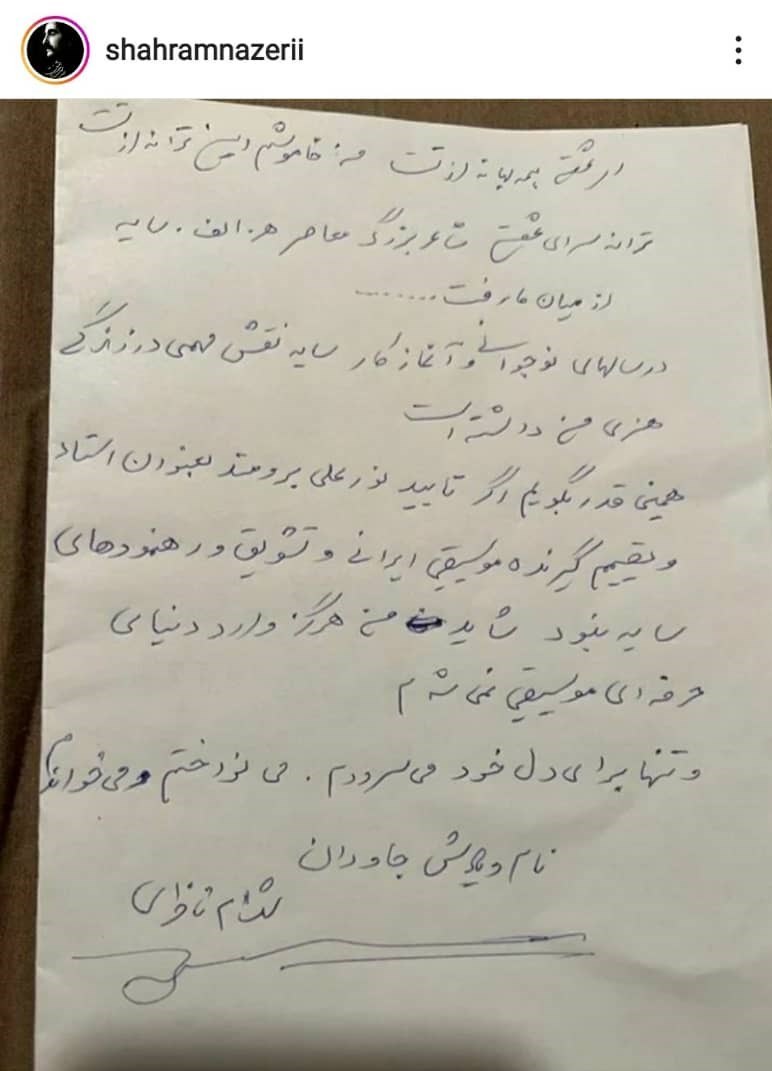 shahramnazerii
ای عشق همه بهانه از تست من خاموشم این ترانه از تست
ترانه سرای عشق شاعر بزرگ معاصر هـ . الف . سایه
از میان ما رفت ........
در سالهای نوجوانی و آغاز کار سایه نقش مهمی در زندگی
هنری من داشته است
همینقدر بگویم اگر تایید نورعلی برومند بعنوان استاد
و تصمیم گیرنده موسیقی ایرانی و تشویق و رهنمودهای
سایه نبود شاید من هرگز وارد دنیای
حرفه ای موسیقی نمی شدم
و تنها برای دل خود می سرودم . می نواختم و می خواندم
نام و یادش جاودان
شهرام ناظری